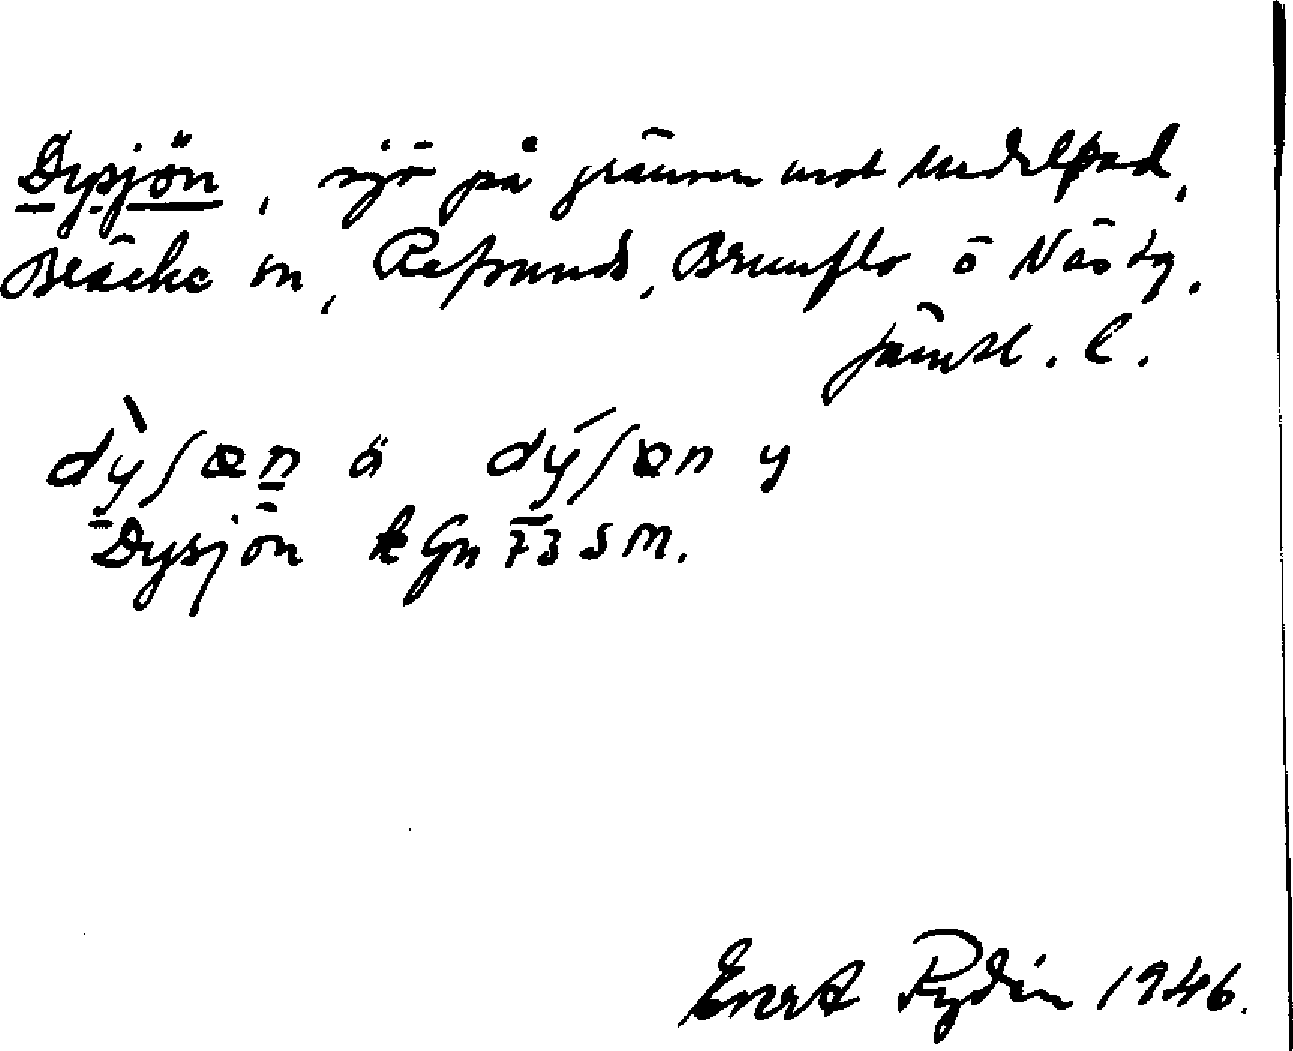 Dysjön, sjö på gränsen mot Medelpad,
Bräcke sn, Refsunds, Brunflo o Näs tg.
Jämtl. l.
dỳʃœn ä dýʃœn y
Dysjön kGn 73 SM.
Evert Rydin 1946.